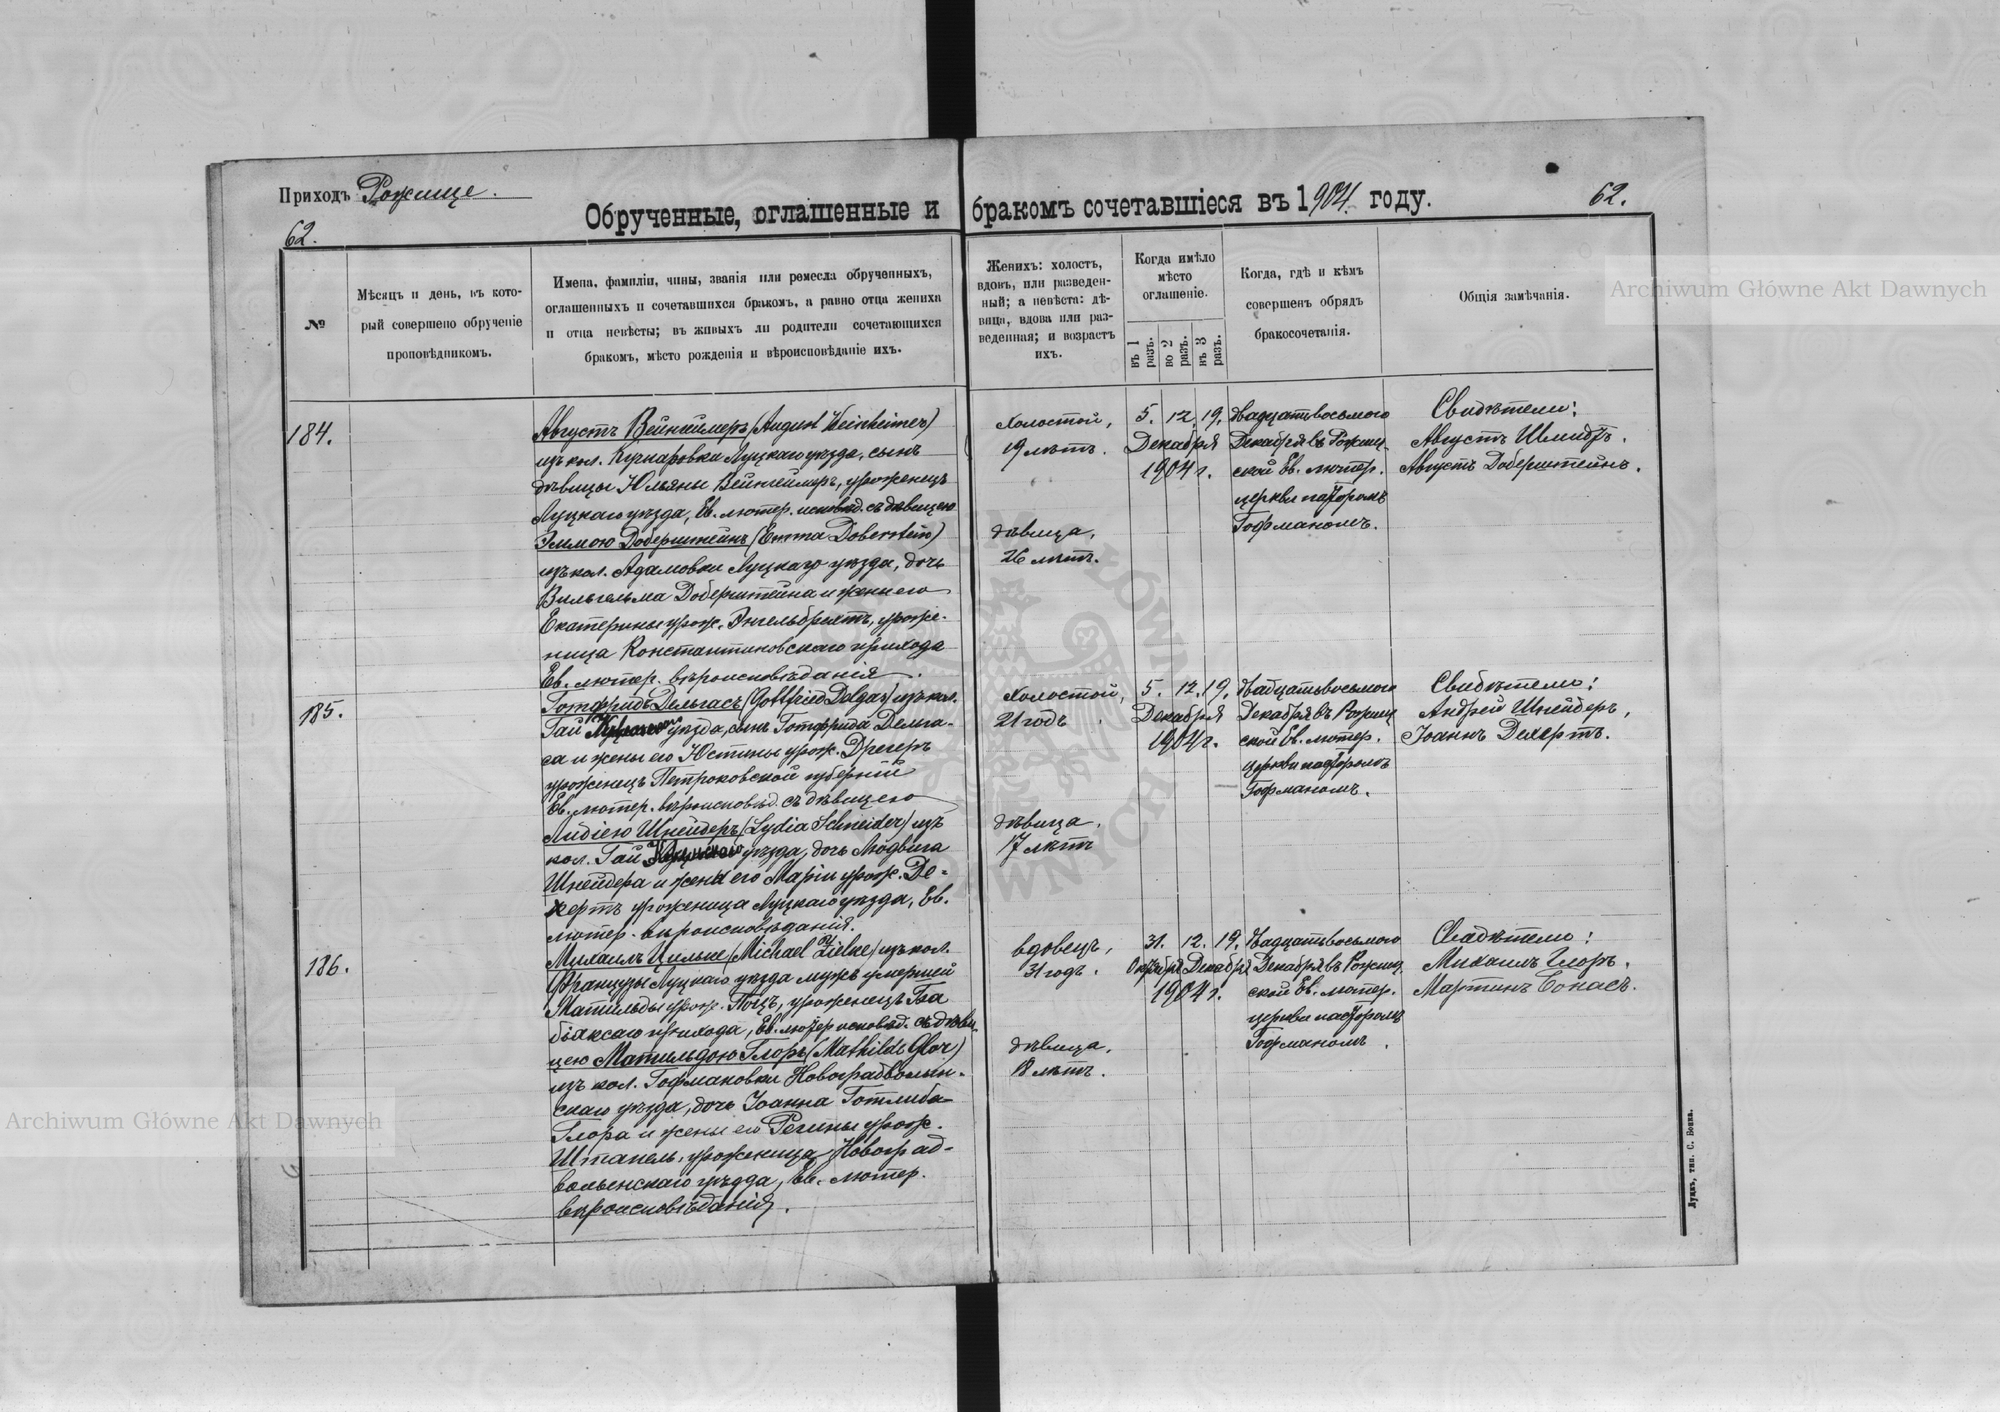 Приходъ Рожище.
62.
Обрученные, оглашенные и бракомъ сочетавшіеся въ 1904 году.
62.
№
Мѣсяцъ и день, въ кото-
рый совершено обрученіе
проповѣдникомъ.
Имена, фамиліи, чины, званія или ремесла обрученныхъ,
оглашенныхъ и сочетавшихся бракомъ, а равно отца жениха
и отца невѣсты; въ живыхъ ли родители сочетающихся
бракомъ, мѣсто рожденія и вѣроисповѣданіе ихъ.
Женихъ: холостъ,
вдовъ, или разведен-
ный; а невѣста: дѣ-
вица, вдова или раз-
веденная; и возрастъ
ихъ.
Когда имѣло
мѣсто
оглашеніе.
въ 1 разъ.
во 2 разъ.
въ 3 разъ.
Когда, гдѣ и кѣмъ
совершенъ обрядъ
бракосочетанія.
Общія замѣчанія.
184.
Августъ Вейнгеймеръ (August Weinheimer)
изъ кол. Луцкаго уѣзда, сынъ
дѣвицы Юльяны Вейнгеймеръ, уроженецъ
Луцкаго уѣзда, Ев. лютер. исповѣд. съ дѣвицею
Эммою Доберштейнъ (Emma Doberstein)
изъ кол. Адамовки Луцкаго уѣзда, дочь
Вильгельма Доберштейна и жены его
Екатерины урож. Энгельбрехтъ, уроже-
ница Константиновскаго прихода
Ев. лютер. вѣроисповѣданія.
Холостой,
19 лѣтъ.
дѣвица,
26 лѣтъ.
5. 12. 19.
Декабря
1904 г.
двадцатьвосьмого
Декабря въ Рожищ-
ской Ев. лютер.
церкви пасторомъ
Гофманомъ.
Свидѣтели:
Августъ Шмидтъ.
Августъ Доберштейнъ.
185.
Готфридъ Дельгасъ (Gottfried Delgas) изъ кол.
Гай уѣзда, сынъ Готфрида Дельга-
са и жены его Юстины урож. Дрегеръ
уроженецъ Петроковской губерніи
Ев. лютер. вѣроисповѣд. съ дѣвицею
Лидіею Шнейдеръ (Lydia Schneider) изъ
кол. Гай уѣзда, дочь Людвига
Шнейдера и жены его Маріи урож. Де-
хертъ уроженица Луцкаго уѣзда, Ев.
лютер. вѣроисповѣданія.
Холостой,
21 годъ.
дѣвица,
17 лѣтъ
5. 12. 19.
Декабря
1904 г.
двадцатьвосьмого
Декабря въ Рожищ-
ской Ев. лютер.
церкви пасторомъ
Гофманомъ.
Свидѣтели:
Андрей Шнейдеръ,
Іоаннъ Дехертъ.
186.
Михаилъ Цильке (Michael Zielke) изъ кол.
Французы Луцкаго уѣзда мужъ умершей
Матильды урож. уроженецъ
прихода, Ев. лютер исповѣд. съ дѣви-
цею Матильдою Глоръ (Mathilde Glor)
изъ кол. Гофмановки Новоградволын-
скаго уѣзда, дочь Іоанна Готлиба
Глора и жены его Регины урож.
уроженица Новоград-
волынскаго уѣзда, Ев. лютер.
вѣроисповѣданія.
вдовецъ,
31 годъ.
дѣвица,
18 лѣтъ.
31. 12. 19.
Октября Декабря
1904 г.
двадцатьвосьмого
Декабря въ Рожищ-
ской Ев. лютер.
церкви пасторомъ
Гофманомъ.
Свидѣтели:
Михаилъ Глоръ.
Мартинъ
Луцкъ, тип. С. Бонка.
Archiwum Główne Akt Dawnych
Archiwum Główne Akt Dawnych